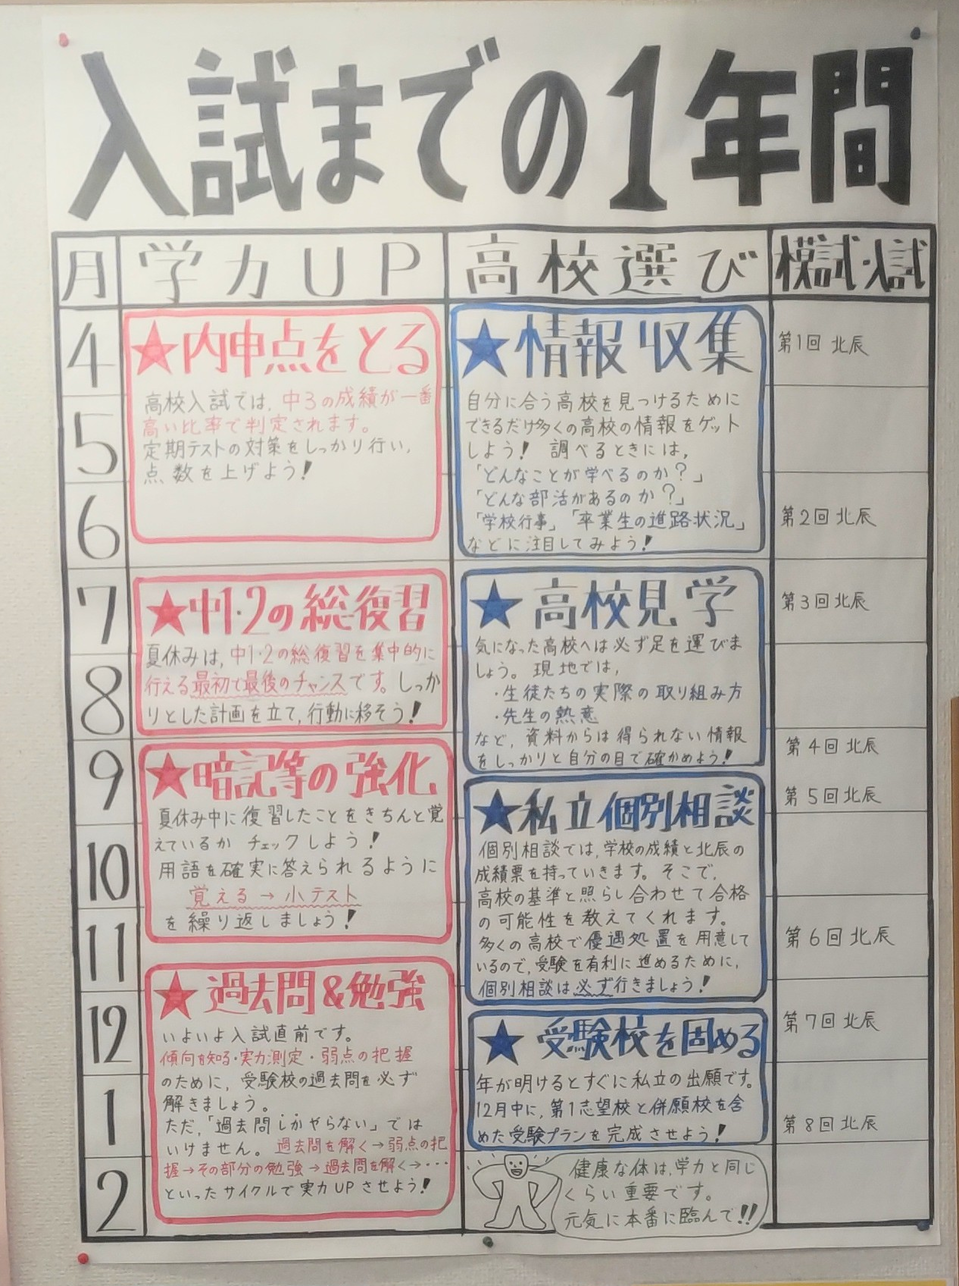 入試までの1年間
月
学力UP
高校選び
模試・入試
4
5
6
7
8
9
10
11
12
1
2
★内申点をとる
高校入試では、中3の成績が一番
高い比率で判定されます。
定期テストの対策をしっかり行い、
点数を上げよう!
★中1・2の総復習
夏休みは、中1・2の総復習を集中的に
行える最初で最後のチャンスです。しっか
りとした計画を立て、行動に移そう!
★暗記等の強化
夏休み中に復習したことをきちんと覚
えているかチェックしよう!
用語を確実に答えられるように
覚える→小テスト
を繰り返しましょう!
★過去問&勉強
いよいよ入試直前です。
傾向を知る・実力測定・弱点の把握
のために、受験校の過去問を必ず
解きましょう。
ただ、「過去問しかやらない」では
いけません。過去問を解く→弱点の把
握→その部分の勉強→過去問を解く→・・・
といったサイクルで実力UPさせよう!
★情報収集
自分に合う高校を見つけるために
できるだけ多くの高校の情報をゲット
しよう! 調べるときには、
「どんなことが学べるのか?」
「どんな部活があるのか?」
「学校行事」「卒業生の進路状況」
などに注目してみよう!
★高校見学
気になった高校へは必ず足を運びま
しょう。現地では、
・生徒たちの実際の取り組み方
・先生の熱意
など、資料からは得られない情報
をしっかりと自分の目で確かめよう!
★私立個別相談
個別相談では、学校の成績と北辰の
成績票を持っていきます。そこで、
高校の基準と照らし合わせて合格
の可能性を教えてくれます。
多くの高校で優遇処置を用意して
いるので、受験を有利に進めるために、
個別相談は必ず行きましょう!
★受験校を固める
年が明けるとすぐに私立の出願です。
12月中に、第1志望校と併願校を含
めた受験プランを完成させよう!
健康な体は、学力と同じ
くらい重要です。
元気に本番に臨んで!!
第1回北辰
第2回北辰
第3回北辰
第4回北辰
第5回北辰
第6回北辰
第7回北辰
第8回北辰